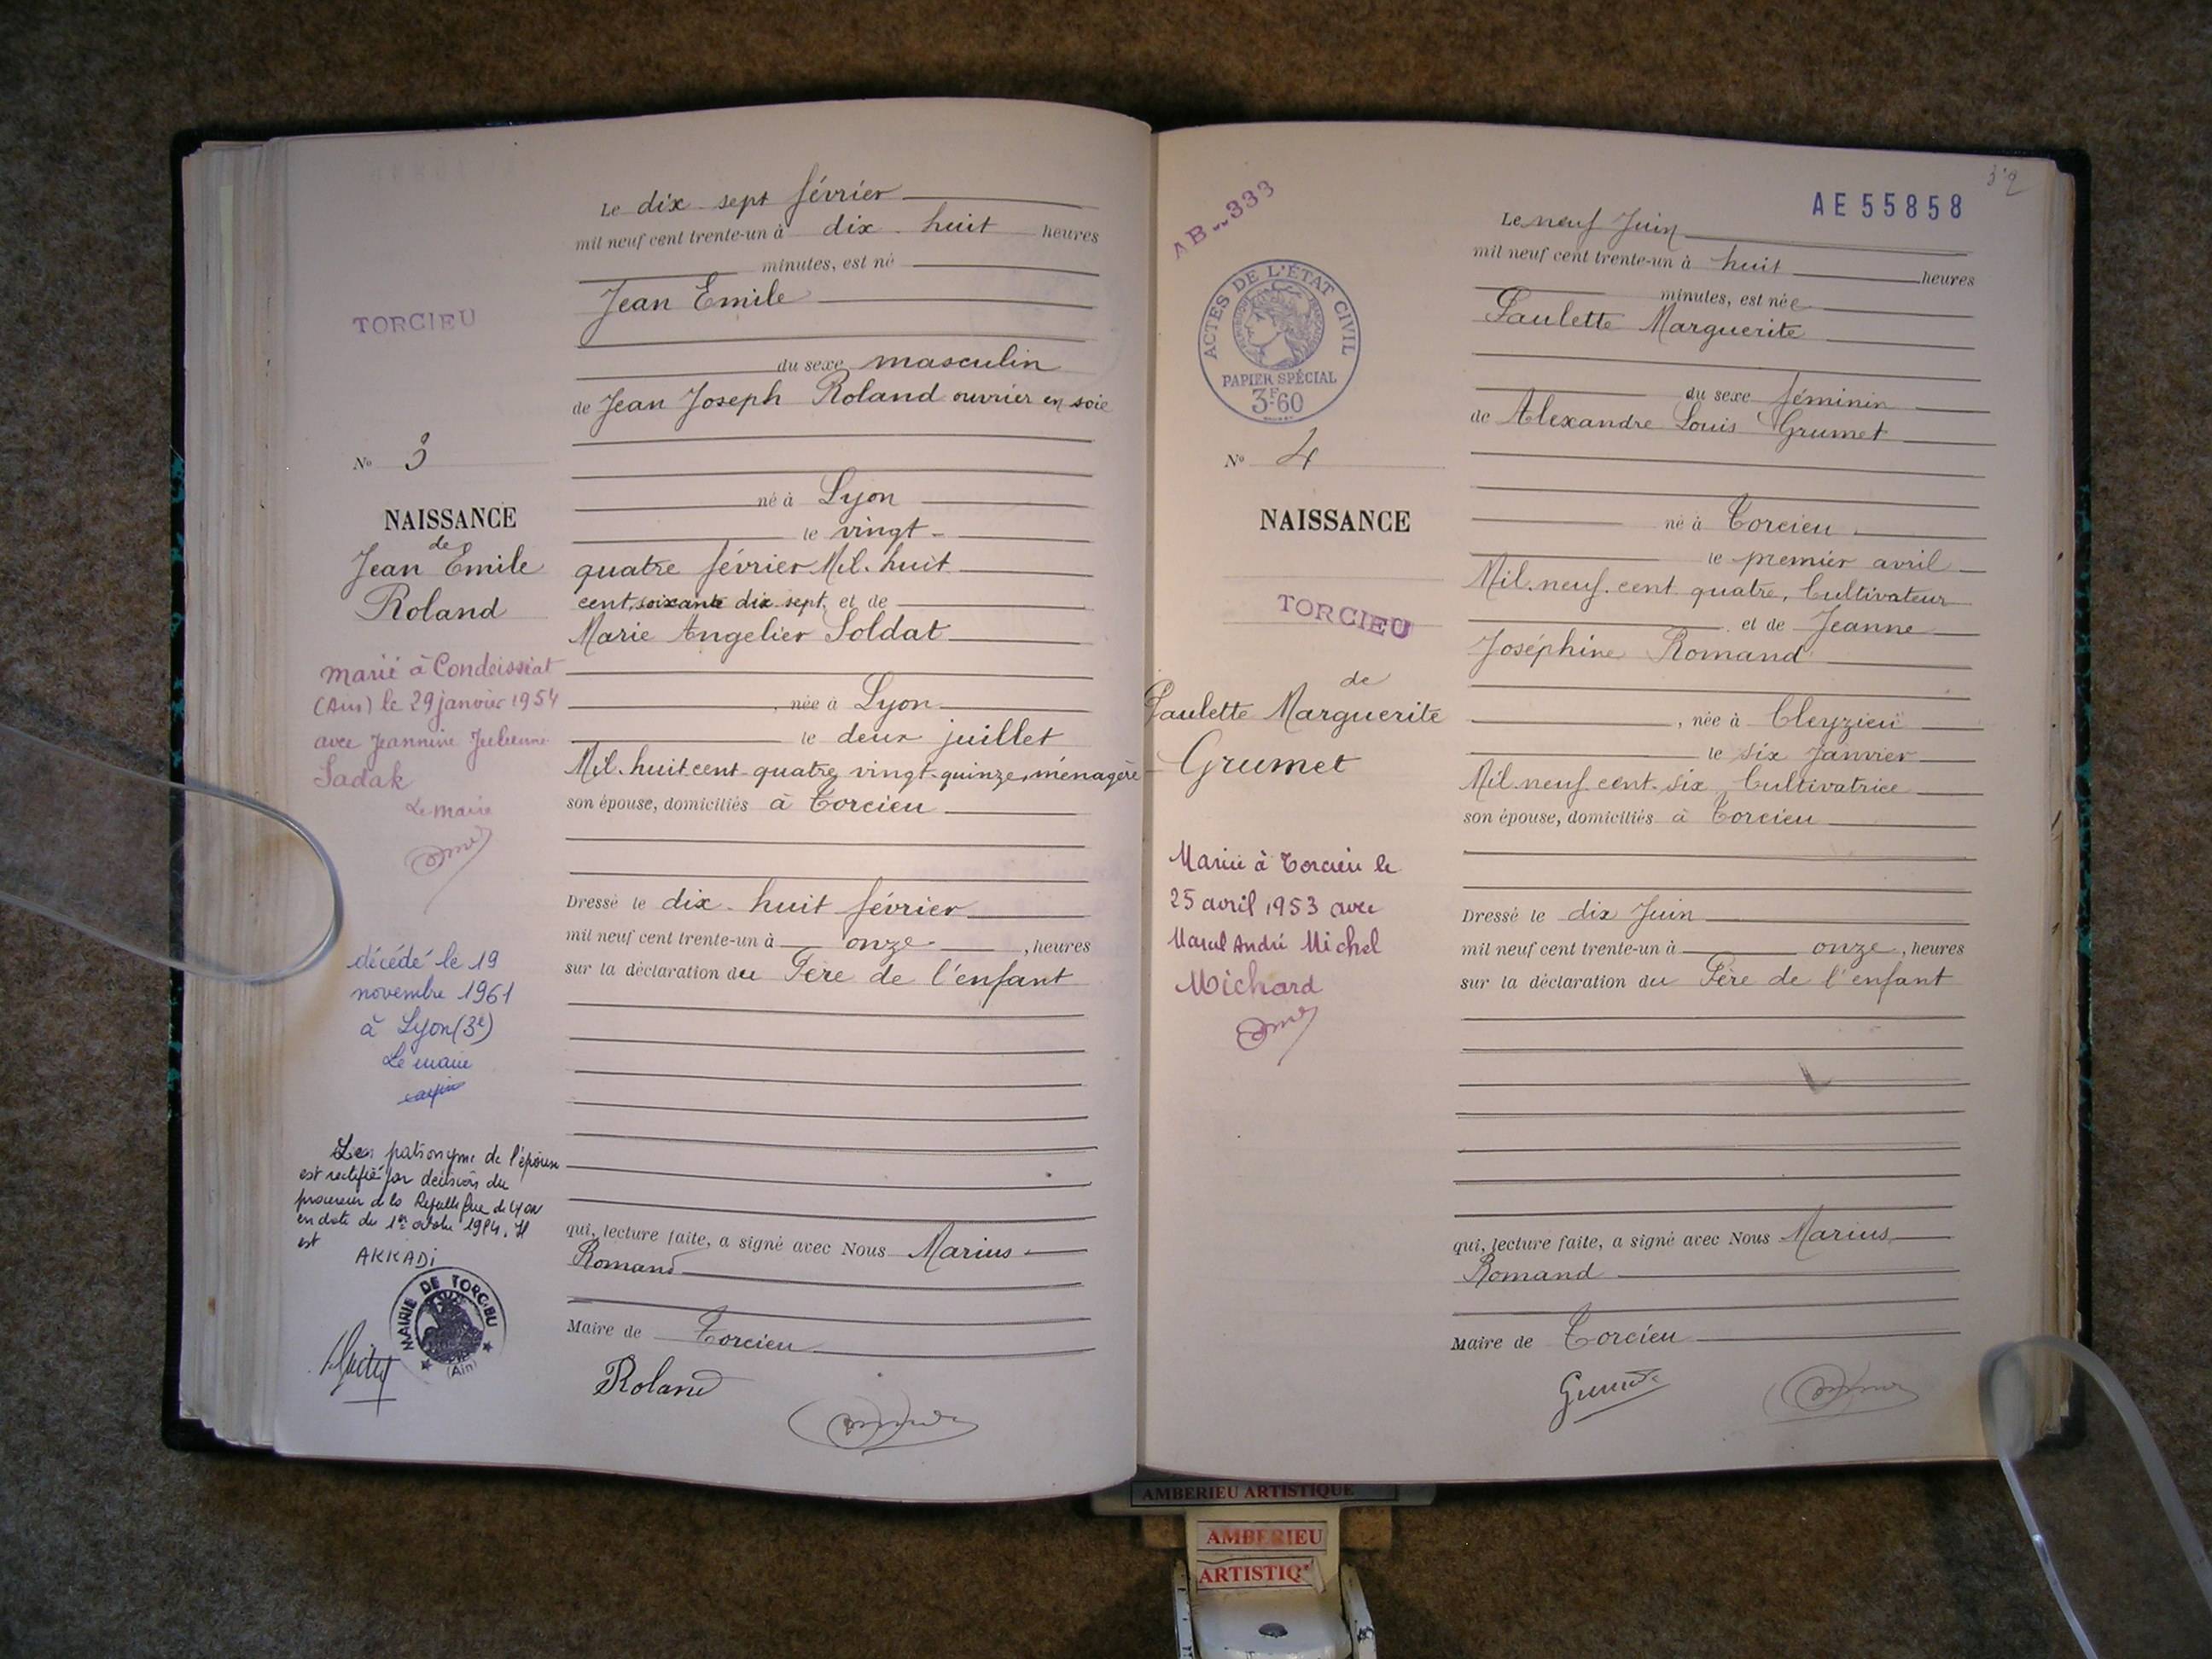 TORCIEU
N° 3
NAISSANCE
de
Jean Emile
Roland
marié à Condeissiat
(Ain) le 29 janvier 1954
avec Jeannine Julienne
Sadak
Le maire
décédé le 19
novembre 1961
à Lyon (3e)
Le maire
patronyme de l'épouse
est rectifié par décision du
procureur de la République de Lyon
en date du 1er octobre 1984. Il
est
AKKADI
MAIRIE DE TORCIEU
(Ain)
Le dix sept février
mil neuf cent trente-un à dix huit heures
minutes, est né
Jean Emile
du sexe masculin
de Jean Joseph Roland ouvrier en soie
né à Lyon
le vingt-
quatre février Mil. huit
cent soixante dix sept et de
Marie Angelier Soldat
, née à Lyon
le deux juillet
Mil. huit cent quatre vingt-quinze, ménagère
son épouse, domiciliés à Torcieu
Dressé le dix huit février
mil neuf cent trente-un à onze , heures
sur la déclaration du Père de l'enfant
qui, lecture faite, a signé avec Nous Marius
Romand
Maire de Torcieu
Roland
AB 333
ACTES DE L'ÉTAT CIVIL
PAPIER SPÉCIAL
3F60
N° 4
NAISSANCE
TORCIEU
de
Paulette Marguerite
Grumet
Mariée à Torcieu le
25 avril 1953 avec
Marcel André Michel
Michard
AE 55858
Le neuf Juin
mil neuf cent trente-un à huit heures
minutes, est née
Paulette Marguerite
du sexe féminin
de Alexandre Louis Grumet
né à Torcieu
le premier avril
Mil. neuf. cent quatre, Cultivateur
et de Jeanne
Joséphine Romand
, née à Cleyzieu
le six Janvier
Mil. neuf cent. six Cultivatrice
son épouse, domiciliés à Torcieu
Dressé le dix Juin
mil neuf cent trente-un à onze , heures
sur la déclaration du Père de l'enfant
qui, lecture faite, a signé avec Nous Marius
Romand
Maire de Torcieu
Grumet
AMBERIEU ARTISTIQUE
AMBERIEU
ARTISTIQ